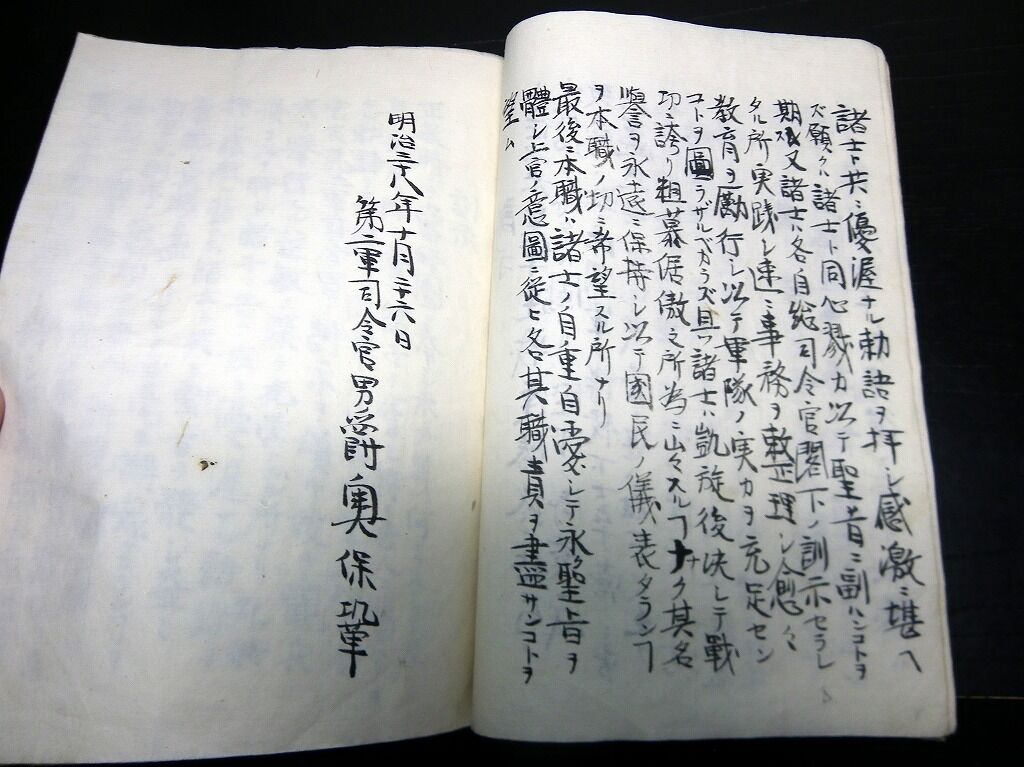 諸士ト共ニ優渥ナル勅語ヲ拝シ感激ニ堪ヘ
ズ願クハ諸士ト同心戮力以テ聖旨ニ副ハンコトヲ
期ス又諸士ハ各自総司令官閣下ノ訓示セラレ
タル所実践シ速ニ事務ヲ整理シ愈々
教育ヲ励行シ以テ軍隊ノ実力ヲ充足セン
コトヲ圖ラザルベカラズ且ツ諸士ハ凱旋後決シテ戦
功ニ誇リ粗暴倨傲之所為ニ出スルヿナク其名
譽ヲ永遠ニ保持シ以テ國民ノ儀表タランヿ
ヲ本職ノ切ニ希望スル所ナリ
最後ニ本職ハ諸士ノ自重自愛シテ永聖旨ヲ
體シ上官ノ意圖ニ従ヒ各其職責ヲ盡サンコトヲ
望ム
明治三十八年十月二十六日
第二軍司令官男爵奥保鞏